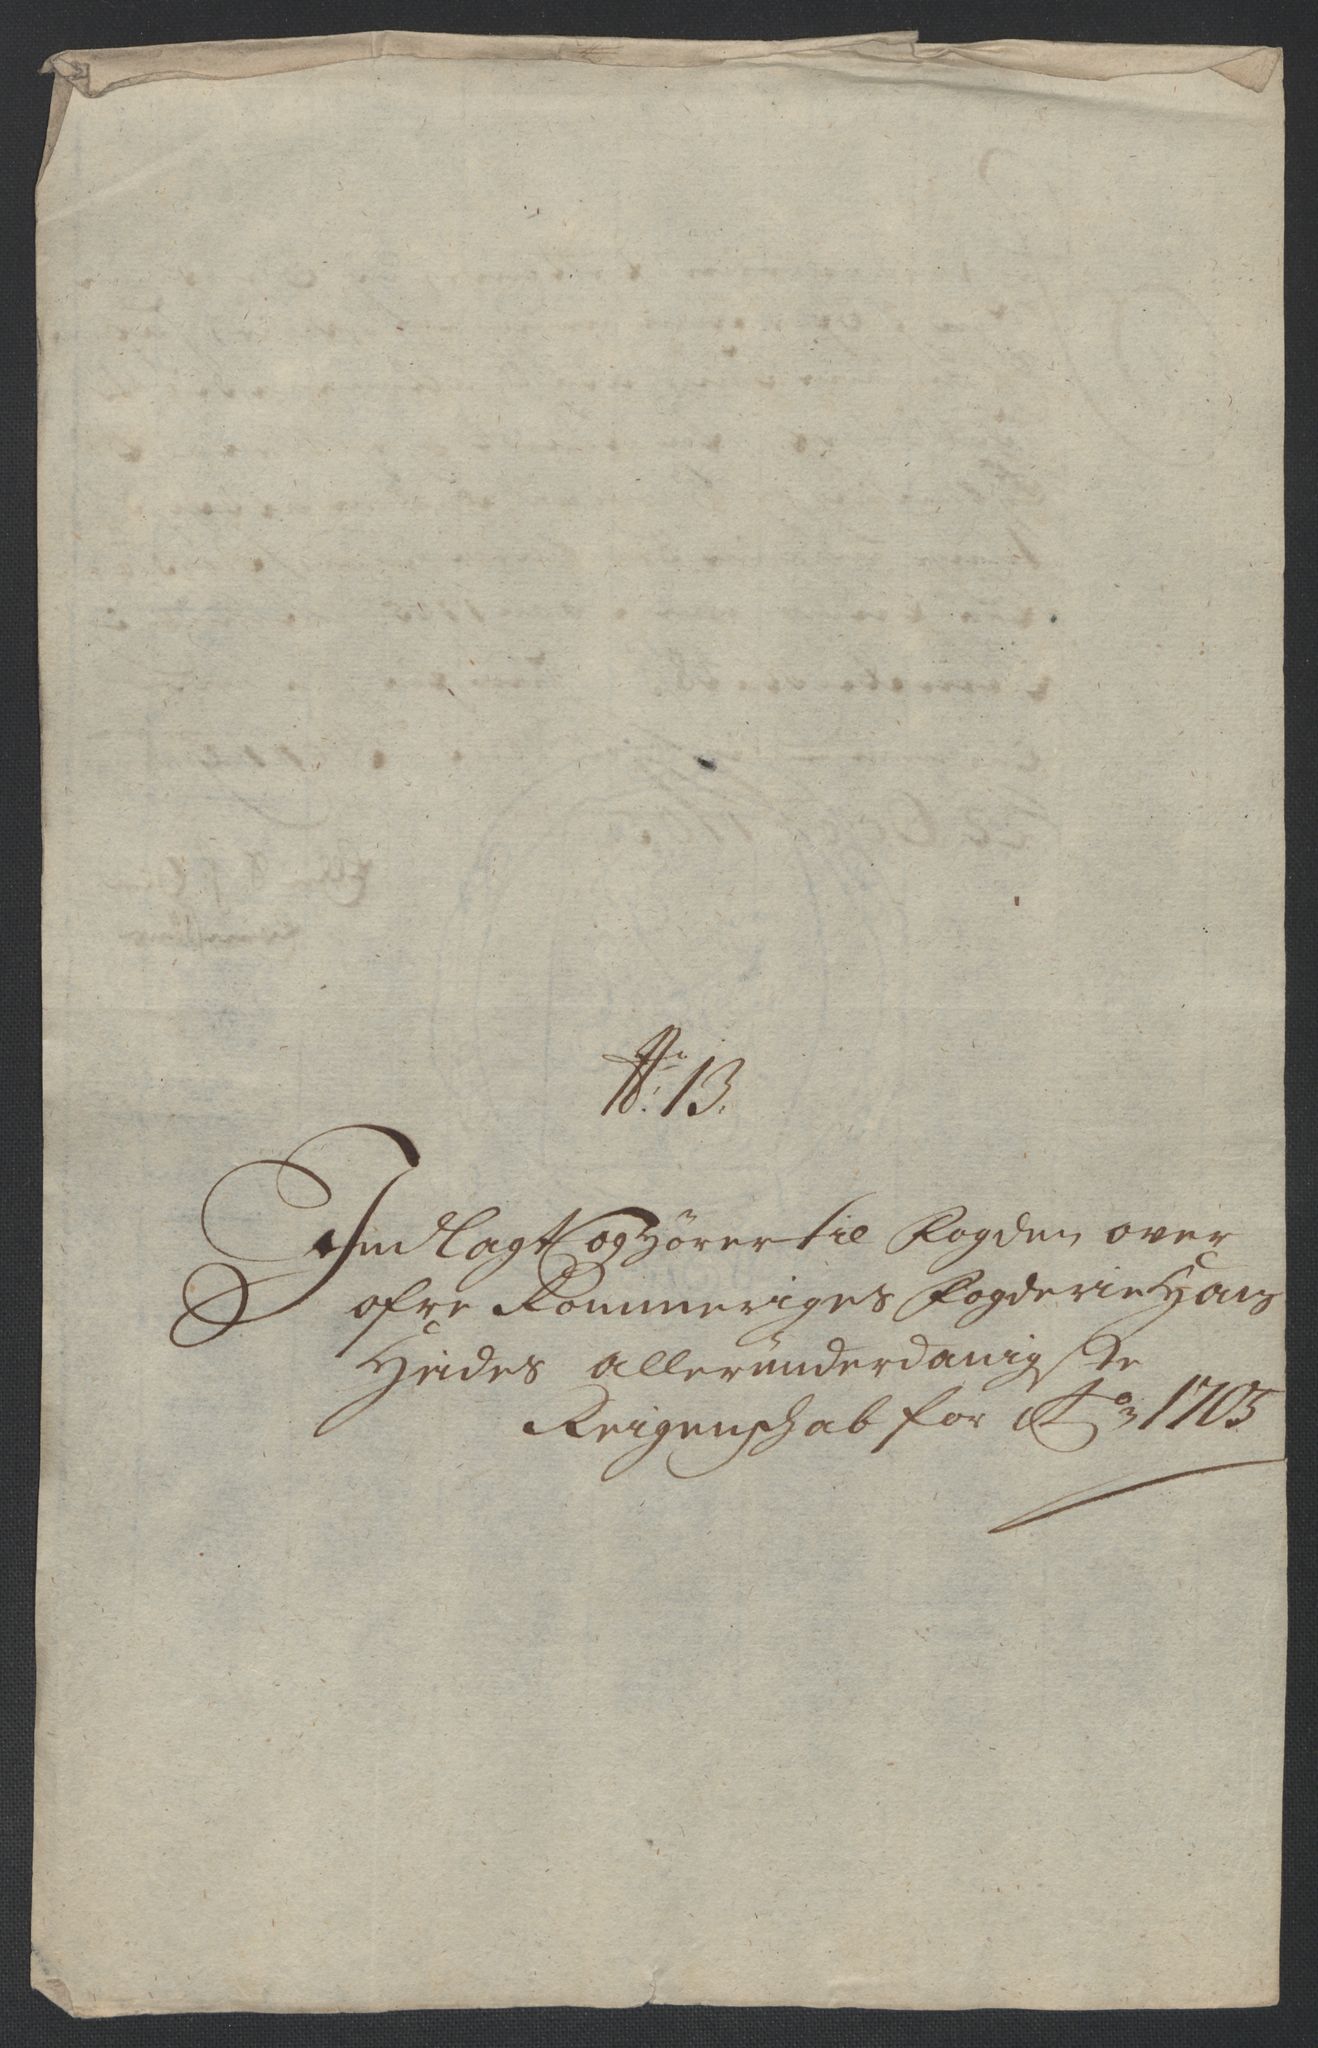 No. 13.
Indlagt og Hører til Fogden over
ofre Rommeriges Fogderie Hans
Heides alleründerdanigste
Reigenschab for Ao 1703